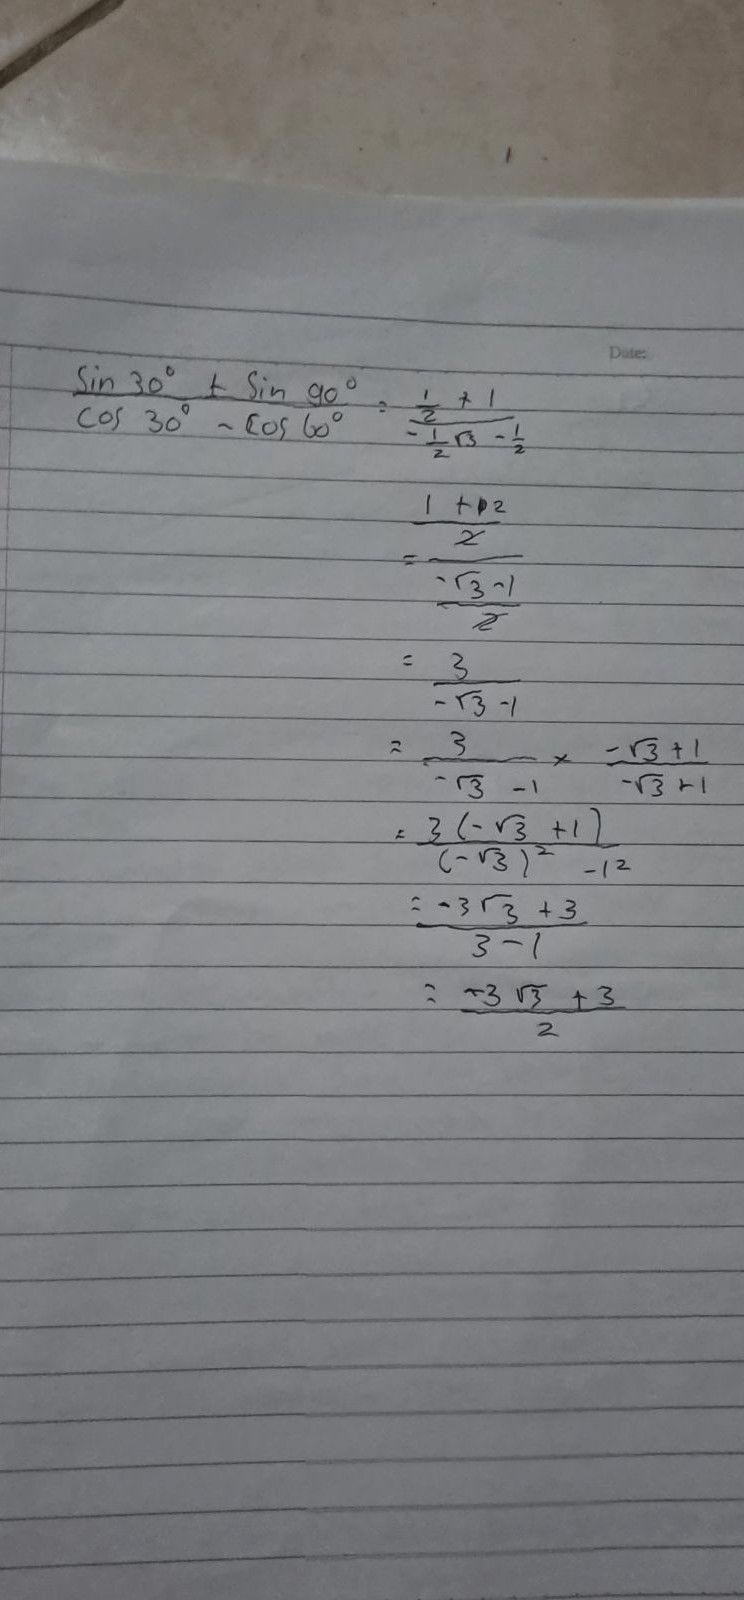 Date:
sin 30° + sin 90° / cos 30° - cos 60° = 1/2 + 1 / -1/2 √3 - 1/2
= 1 + 2 / 2 / -√3 - 1 / 2
= 3 / -√3 - 1
= 3 / -√3 - 1 × -√3 + 1 / -√3 + 1
= 3 (-√3 + 1) / (-√3)² - 1²
= -3√3 + 3 / 3 - 1
= -3√3 + 3 / 2